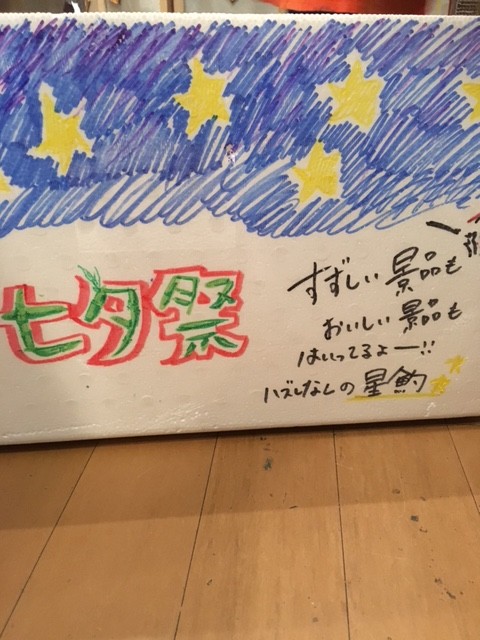 七夕祭
すずしい景品も
おいしい景品も
はいってるよー!!
ハズレなしの星釣